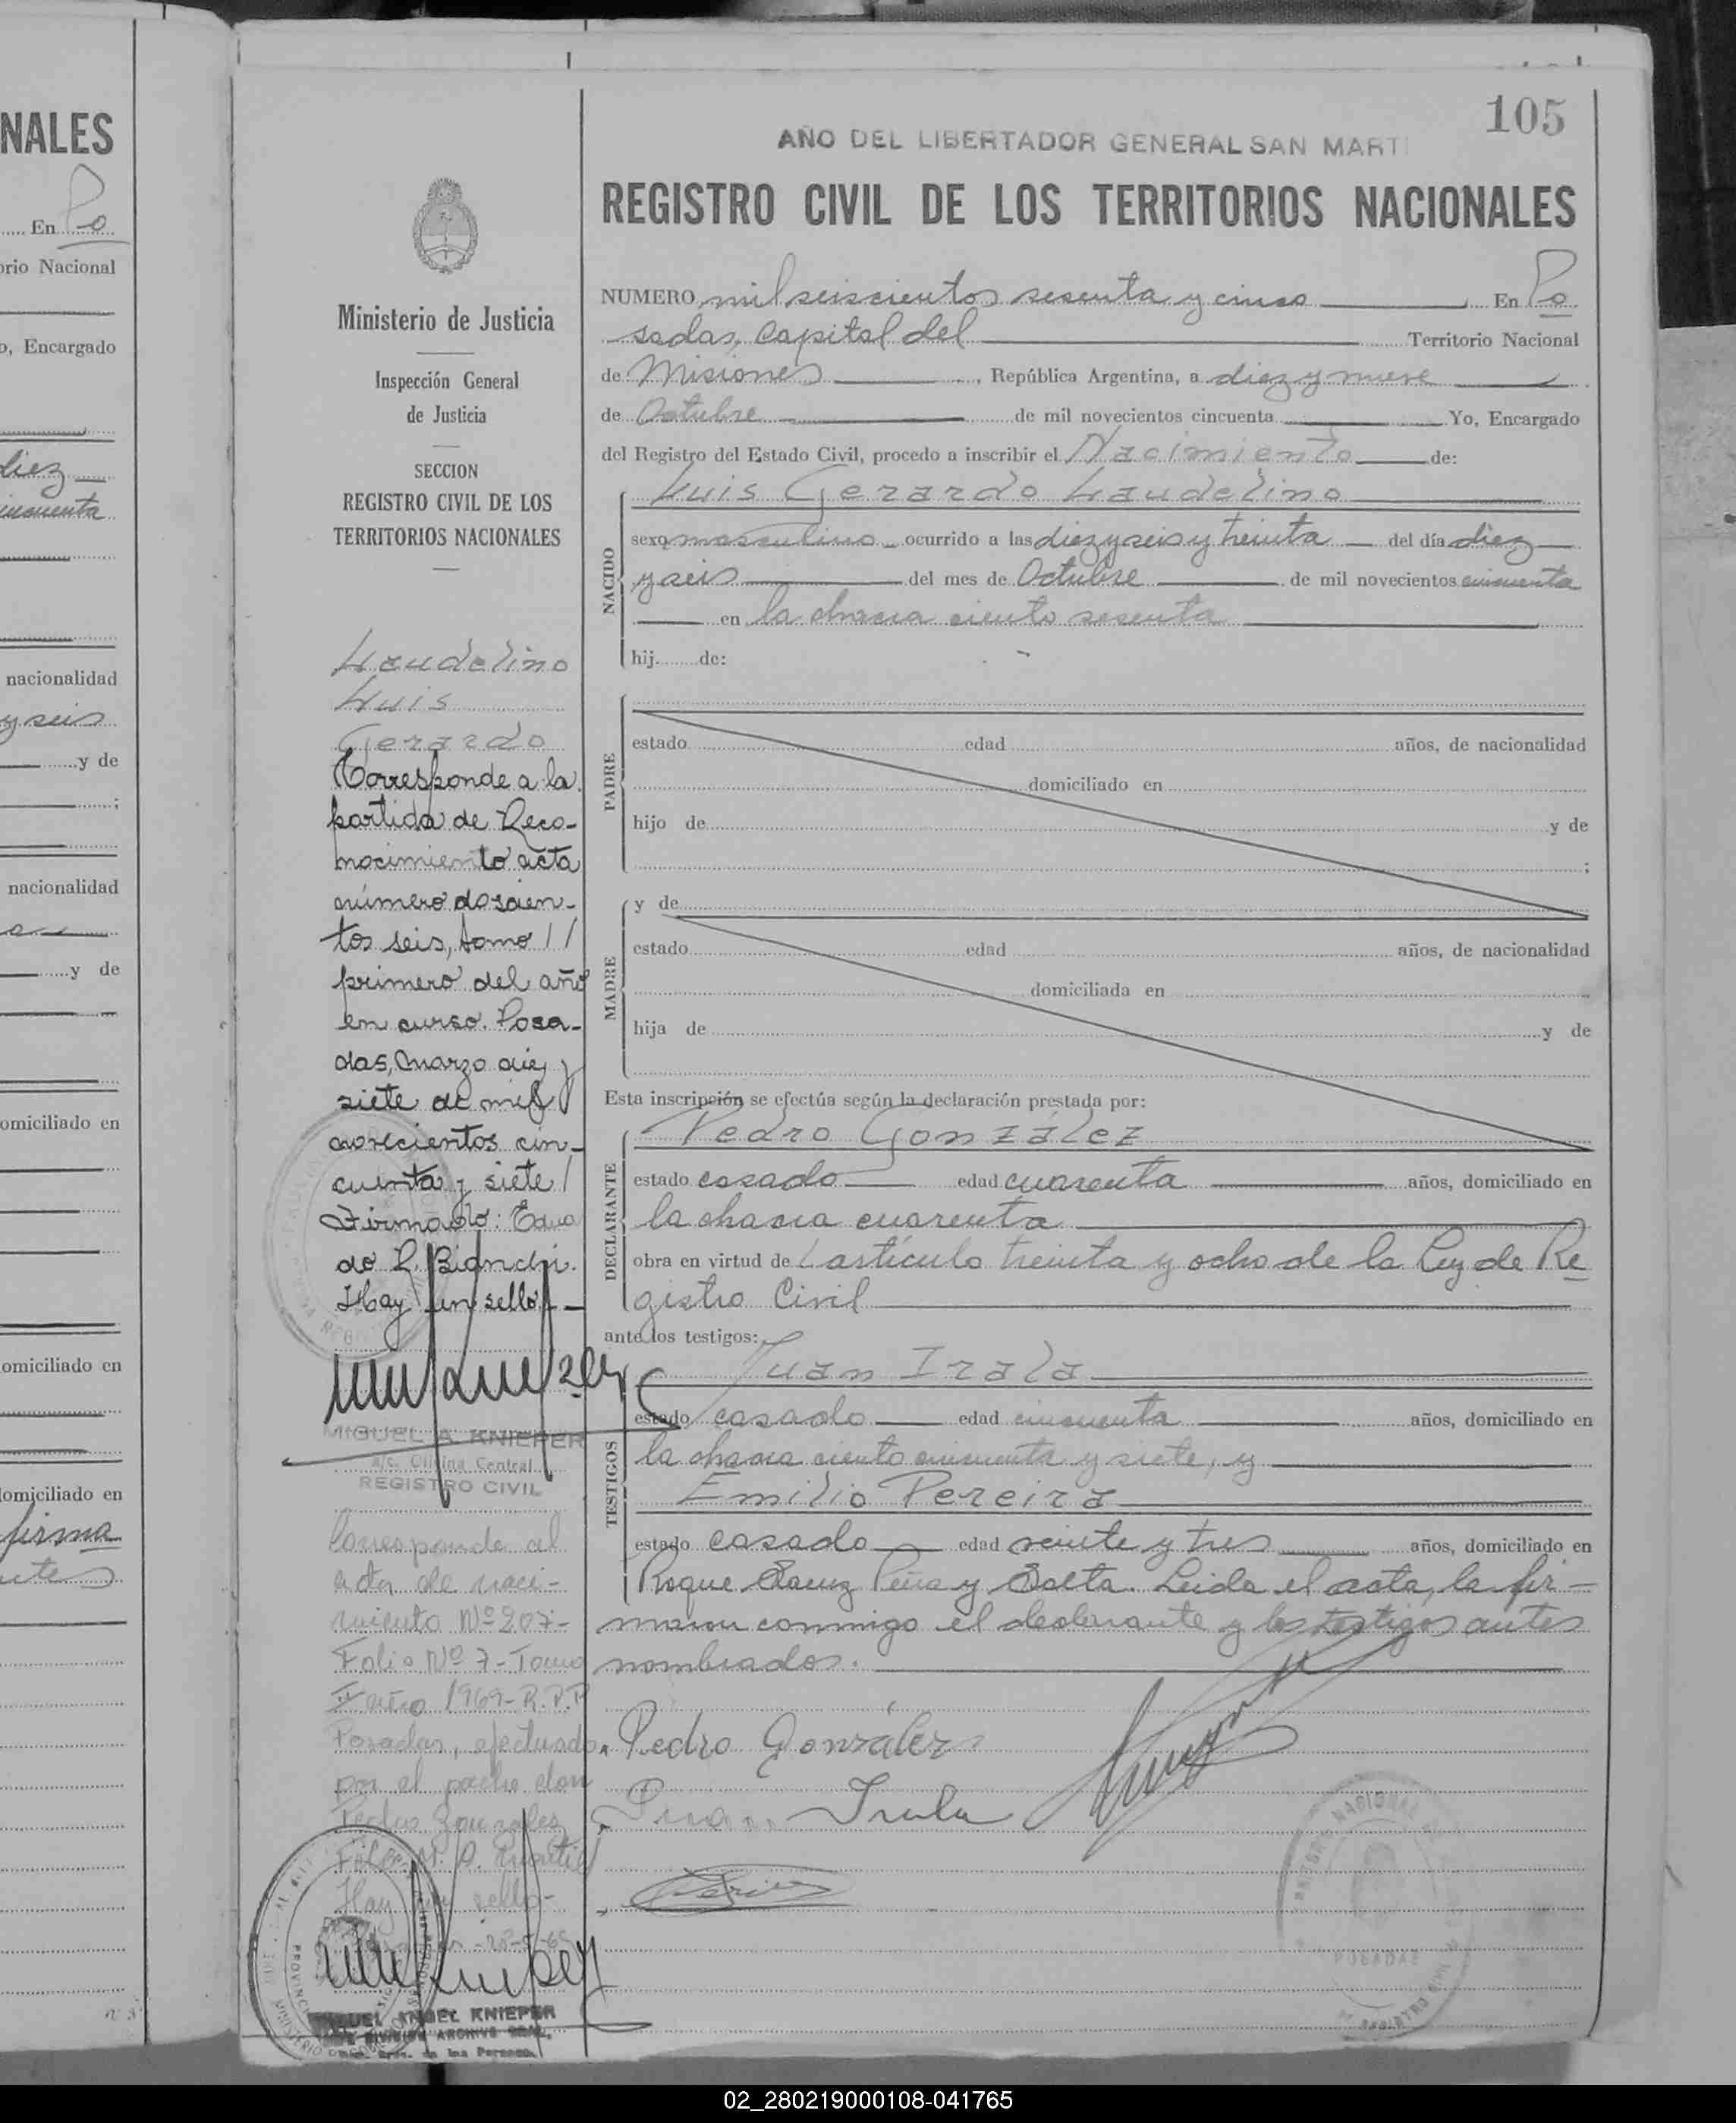 NALES
En Po
orio Nacional
o, Encargado
diez
incuenta
nacionalidad
y seis
y de
;
nacionalidad
y de
omiciliado en
omiciliado en
domiciliado en
firma
105
AÑO DEL LIBERTADOR GENERAL SAN MARTI
REGISTRO CIVIL DE LOS TERRITORIOS NACIONALES
Ministerio de Justicia
Inspección General
de Justicia
SECCION
REGISTRO CIVIL DE LOS
TERRITORIOS NACIONALES
Laudelino
Luis
Gerardo
Corresponde a la
partida de Reco-
nocimiento acta
número doscien-
tos seis, tomo //
primero del año
en curso. Posa-
das, Marzo diez y
siete de mil
novecientos cin-
cuenta y siete/
Firmado: Edua
do L. Bianchi.
Hay un sello. -
MIGUEL A. KNIEPER
a/c. Oficina Central
REGISTRO CIVIL
Corresponde al
acta de naci-
miento Nº 207-
Folio Nº 7 - Tomo
II año 1969 - R.P.P
Posadas, efectuado
por el padre don
Pedro Gonzalez
Hay sello-
MIGUEL ANGEL KNIEPER
DIVISION ARCHIVO GRAL.
de las Personas
NUMERO mil seiscientos sesenta y cinco En Po
sadas, Capital del Territorio Nacional
de Misiones, República Argentina, a diez y nueve
de Octubre de mil novecientos cincuenta Yo, Encargado
del Registro del Estado Civil, procedo a inscribir el Nacimiento de:
NACIDO
Luis Gerardo Laudelino
sexo masculino ocurrido a las diez y seis y treinta del día diez
y seis del mes de Octubre de mil novecientos cincuenta
en la chacra ciento sesenta
hij de:
PADRE
estado edad años, de nacionalidad
domiciliado en
hijo de y de
;
MADRE
y de
estado edad años, de nacionalidad
domiciliada en
hija de y de
Esta inscripción se efectúa según la declaración prestada por:
DECLARANTE
Pedro González
estado casado edad cuarenta años, domiciliado en
la chacra cuarenta
obra en virtud de l artículo treinta y ocho de la Ley de Re
gistro Civil
ante los testigos:
TESTIGOS
Juan Irala
estado casado edad cincuenta años, domiciliado en
la chacra ciento cincuenta y siete, y
Emilio Pereira
estado casado edad veinte y tres años, domiciliado en
Roque Saenz Peña y Salta. Leida el acta, la fir-
maron conmigo el declarante y los testigos antes
nombrados.
Pedro González
Juan Irala
POSADAS
02_280219000108-041765